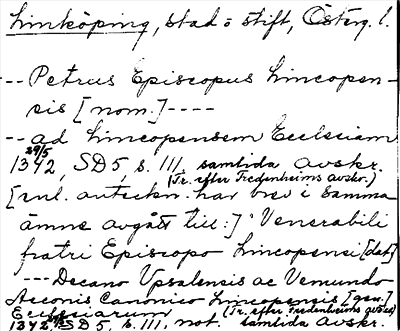 Linköping, stad o stift, Österg. l.
-- Petrus Episcopus Lincopen-
sis [nom.] ----
-- ad Lincopensem Ecclesiam
1342 29/5, SD5, s. 111, samtida avskr.
(Tr. efter Fredenheims avskr.)
[enl. anteckn. har brev i samma
ämne avgått till:] Venerabili
fratri Episcopo Lincopensi [dat]
--- Decano Vpsalensis ac Vemundo
Aeconis Canonico Lincopensis [gen.]
Ecclesiarum (Tr. efter Fredenheims avskr.)
1342 SD5, s. 111, not. samtida avskr.